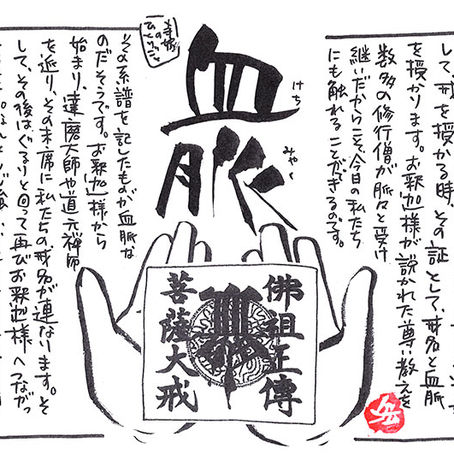 して、戒を授かる時、その証として、戒名と血脈
を授かります。お釈迦様が説かれた尊い教えを
数多の修行僧が脈々と受け
継いだからこそ、今日の私たち
にも触れることができるのです。
血脈
けち
みゃく
佛祖正傳
血脈
菩薩大戒
その系譜を記したものが血脈な
のだそうです。お釈迦様から
始まり、達磨大師や道元禅師
を巡り、その末席に私たちの戒名が連なります。そ
して、その後はぐるりと回って再びお釈迦様へつながっ